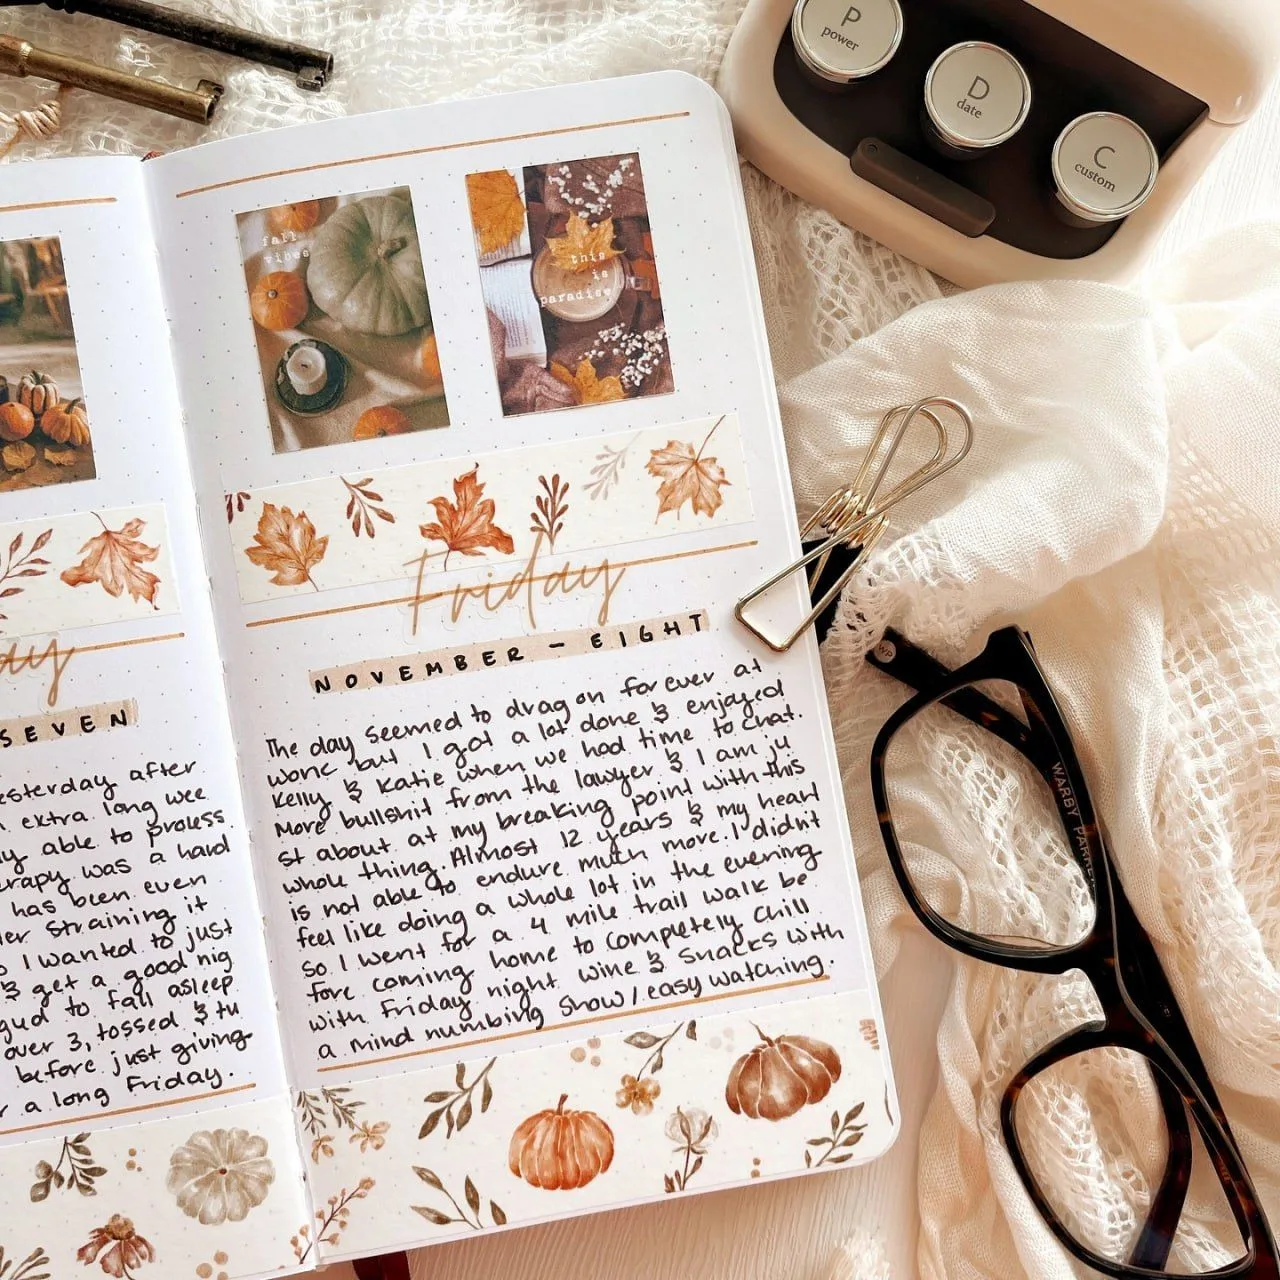 P
power
D
date
C
custom
fall
vibes
this
is
paradise
ay
SEVEN
esterday after
extra long wee
y able to process
erapy was a hard
has been even
er straining it
o I wanted to just
& get a good nig
gud to fall asleep
over 3, tossed & tu
before just giving
r a long Friday.
Friday
NOVEMBER - EIGHT
The day seemed to drag on forever at
work but I got a lot done & enjoyed
Kelly & Katie when we had time to chat.
More bullshit from the lawyer & I am ju
st about at my breaking point with this
whole thing. Almost 12 years & my heart
is not able to endure much more. I didn't
feel like doing a whole lot in the evening
so I went for a 4 mile trail walk be
fore coming home to completely chill
with Friday night wine & snacks with
a mind numbing show/easy watching.
WP
WARBY PARKER